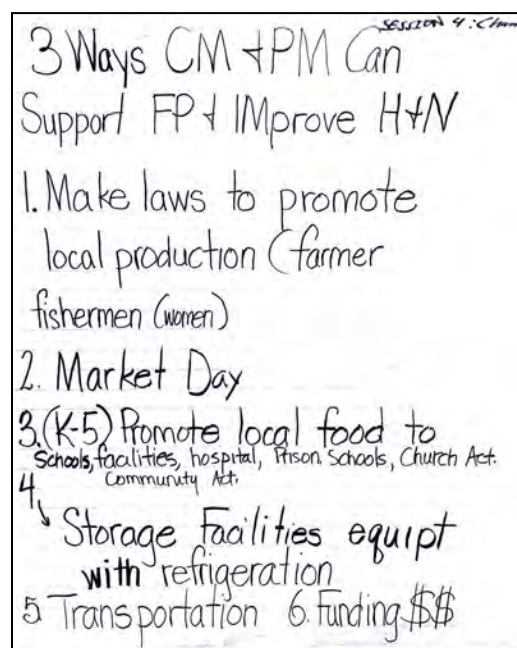 SESSION 4:
3 Ways CM + PM Can
Support FP + IMprove H+N
1. Make laws to promote
local production (farmer
fishermen (women)
2. Market Day
3. (K-5) Promote local food to
Schools, facilities, hospital, Prison. Schools, Church Act.
Community Act.
4.
Storage Facilities equipt
with refrigeration
5 Transportation 6. Funding $$